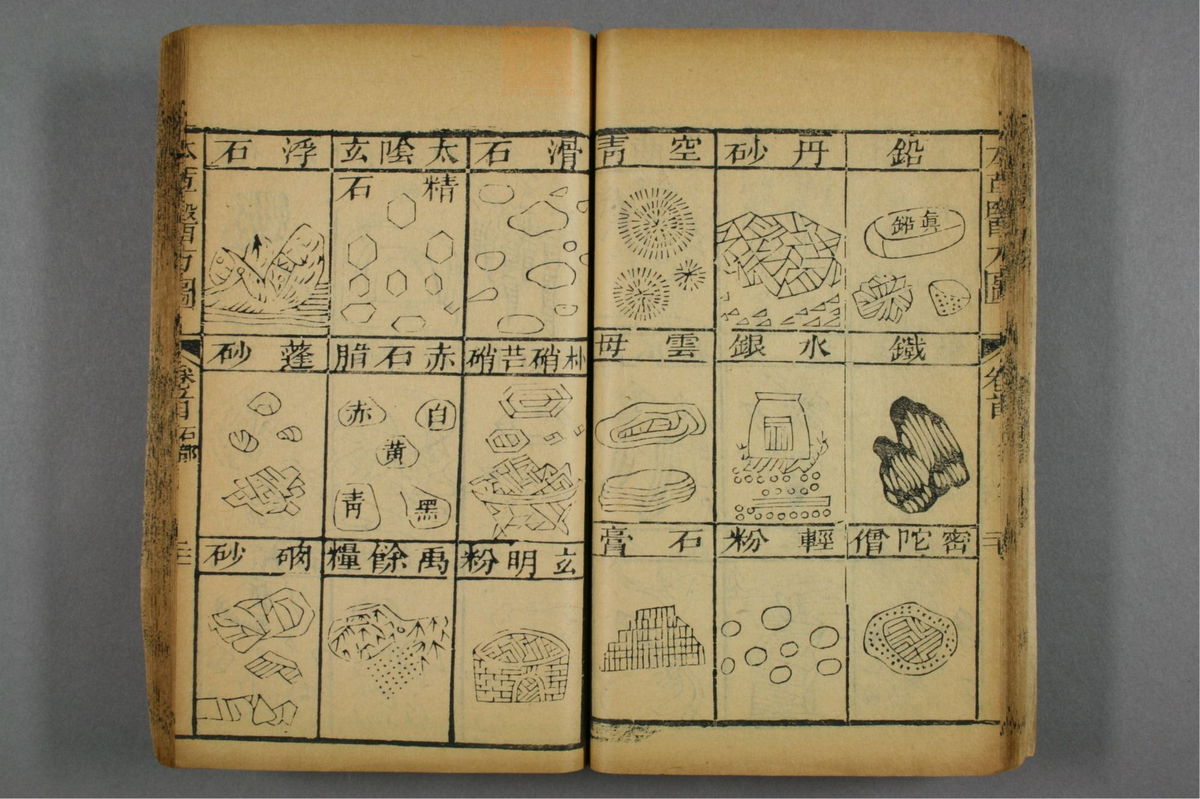 本草醫方圖
卷首
鉛
眞鉛
丹砂
空靑
鐵
水銀
雲母
密陀僧
輕粉
石膏
滑石
太陰玄
精石
浮石
朴硝芒硝
赤石脂
白
赤
黄
黑
靑
蓬砂
玄明粉
禹餘糧
硇砂
本草醫方圖
卷首
石部